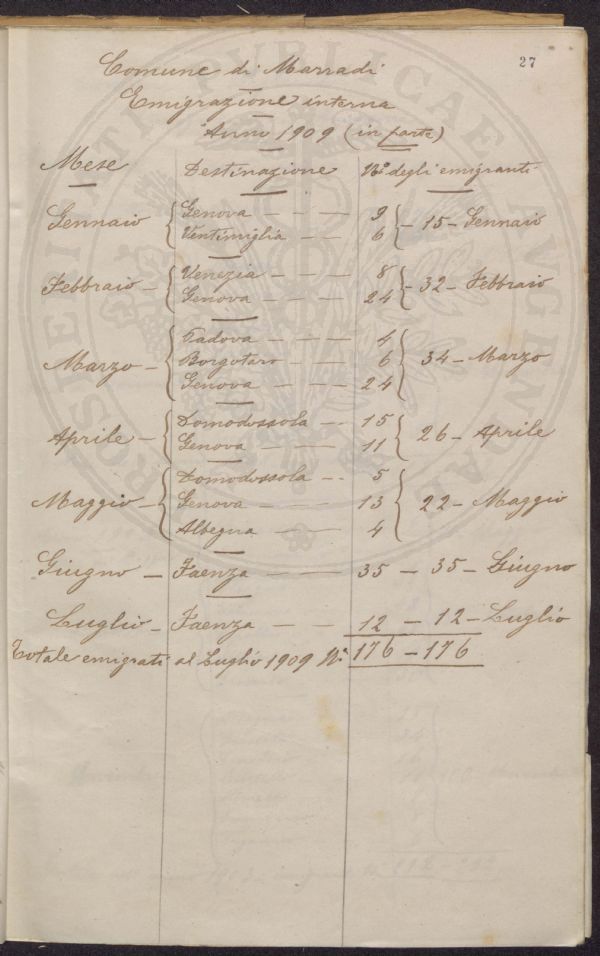 27
Comune di Marradi
Emigrazione interna
Anno 1909 (in parte)
Mese Destinazione No. degli emigranti
Gennaio { Genova — — — 9 } — 15 — Gennaio
Ventimiglia — — 6
Febbraio — { Venezia — — — 8 } — 32 — Febbraio
Genova — — — 24
Marzo — { Padova — — — 4 } 34 — Marzo
Borgotaro — — — 6
Genova — — — 24
Aprile — { Domodossola — — 15 } 26 — Aprile
Genova — — — 11
Maggio — { Domodossola — — 5 } 22 — Maggio
Genova — — — 13
Albegna — — 4
Giugno — Faenza — — — 35 — 35 — Giugno
Luglio — Faenza — — 12 — 12 — Luglio
Totale emigrati al Luglio 1909 No. 176 — 176